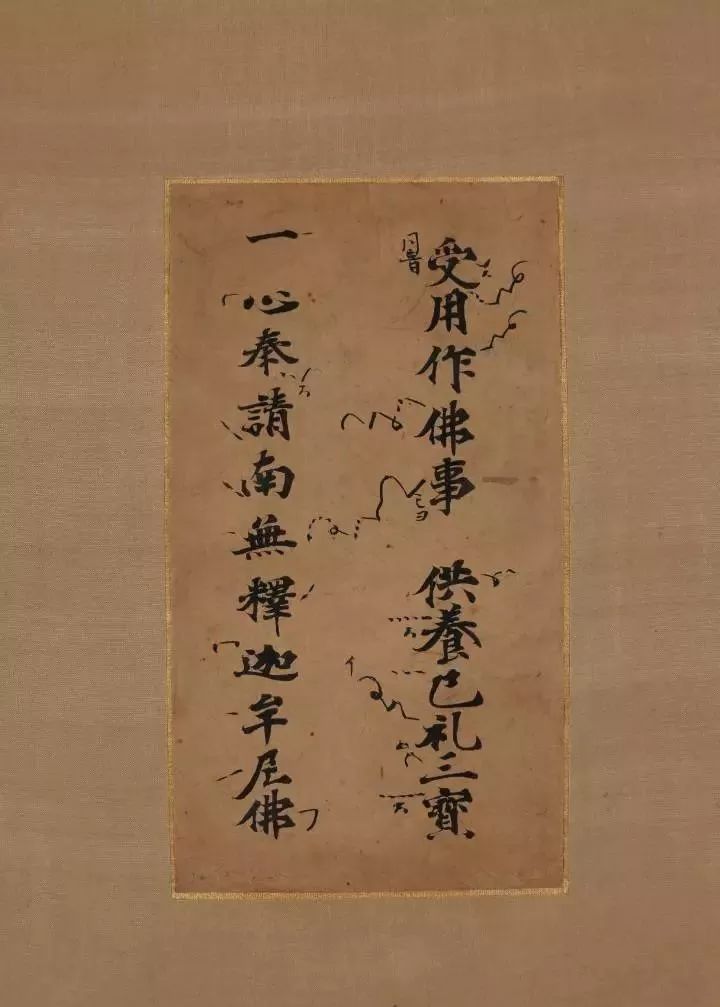 同音
受用作佛事 供養已礼三寳
一心奉請南無釋迦牟尼佛